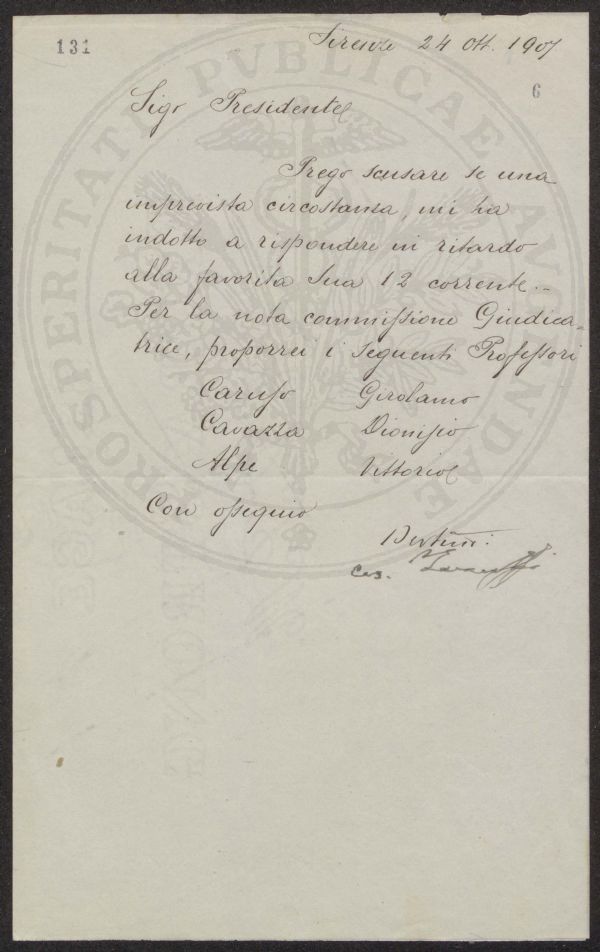 131
Firenze 24 Ott. 1907
6
Sigr Presidente
Prego scusare se una
imprevista circostanza, mi ha
indotto a rispondere in ritardo
alla favorita Sua 12 corrente.-
Per la nota commissione Giudica-
trice, proporrei i seguenti Professori
Caruso Girolamo
Cavazza Dionisio
Alpe Vittorio
Con ossequio
PROSPERITATI PVBLICAE AVGENDAE